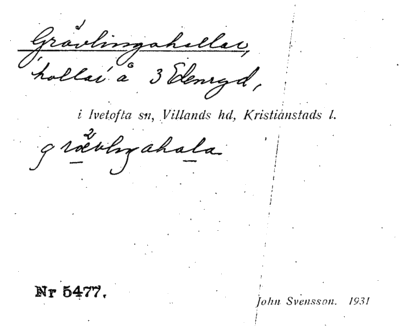 Grävlingahallar,
'hallar' å 3 Edenryd,
i Ivetofta sn, Villands hd, Kristianstads l.
Nr 5477.
John Svensson. 1931